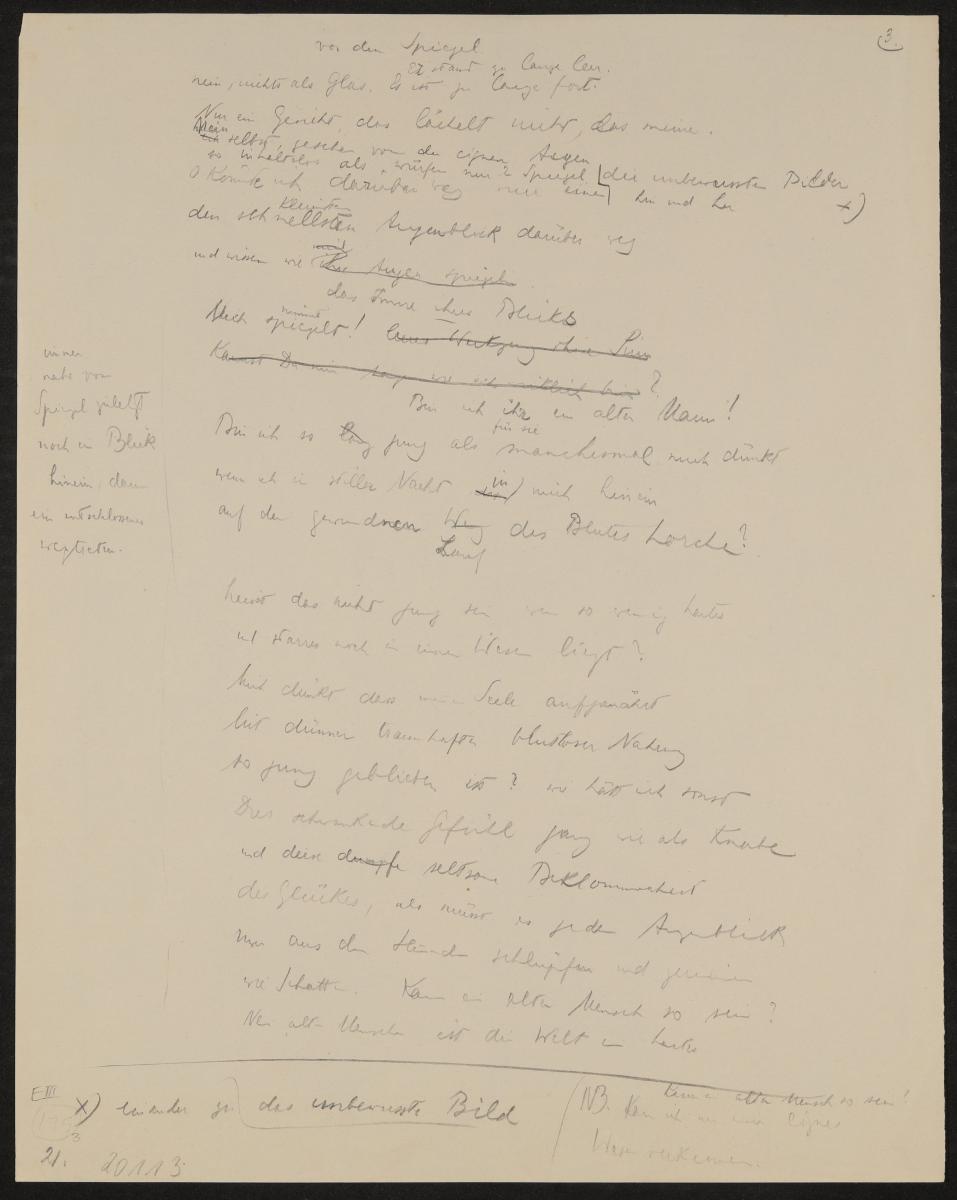 3.
vor dem Spiegel
Er stand zu lange leer.
nein, nichts als Glas. Es ist zu lange fort.
Nur ein Gesicht, das lächelt nicht, das meine.
Mein selbst, gesehen von den eignen Augen
so inhaltslos als würfen nur 2 Spiegel die unbewussten Bilder
O könnte ich darüber weg nur einen hin und her x)
kleinsten
den schnellsten Augenblick darüber weg
und wissen wie ihre Augen spiegeln
das Innre ihres Blicks
nimmt
Mich spiegelt!
Kannst Du mir sagen wie ich wirklich bin?
Bin ich ihr ein alter Mann!
für sie
Bin ich so jung als manchesmal mich dünkt
wenn ich in stiller Nacht in mich hinein
auf den gewundnen Weg des Blutes horche?
Lauf
immer
mehr vom
Spiegel
noch ein Blick
hinein, dann
ein entschlossenes
wegtreten.
heisst das nicht jung sein wenn so wenig hartes
und starres noch in meinem Wesen liegt?
Mich dünkt dass meine Seele aufgenährt
mit dünner traumhafter blutloser Nahrung
so jung geblieben ist? wie hätt ich sonst
Dies schwankende Gefühl ganz wie als Knabe
und diese dumpfe seltsame Beklommenheit
des Glückes, als müsst es jeden Augenblick
mir aus den Händen schlüpfen und zerrinnen
wie Schatten. Kann ein alter Mensch so sein?
Nein alten Menschen ist die Welt ein hartes
E III
3
x) einander zu das unbewusste Bild
kann ein alter Mensch so sein!
NB. Kann ich mein eignes
Wesen verkennen.
21.
20113